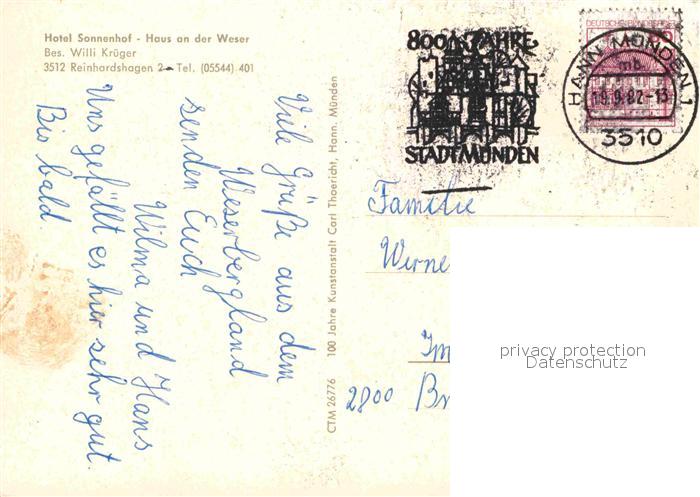 Hotel Sonnenhof - Haus an der Weser
Bes. Willi Krüger
3512 Reinhardshagen 2 - Tel. (05544) 401
Viele Grüße aus dem
Weserbergland
senden Euch
Wilma und Hans
Uns gefällt es hier sehr gut.
Bis bald.
CTM 26776 100 Jahre Kunstanstalt Carl Thoericht, Hann. Münden
800 JAHRE
STADT MÜNDEN
DEUTSCHE BUNDESPOST
HANN MÜNDEN 1
mb
-9.9.82-13
3510
Familie
Werne
Im
2800 Br
privacy protection
Datenschutz